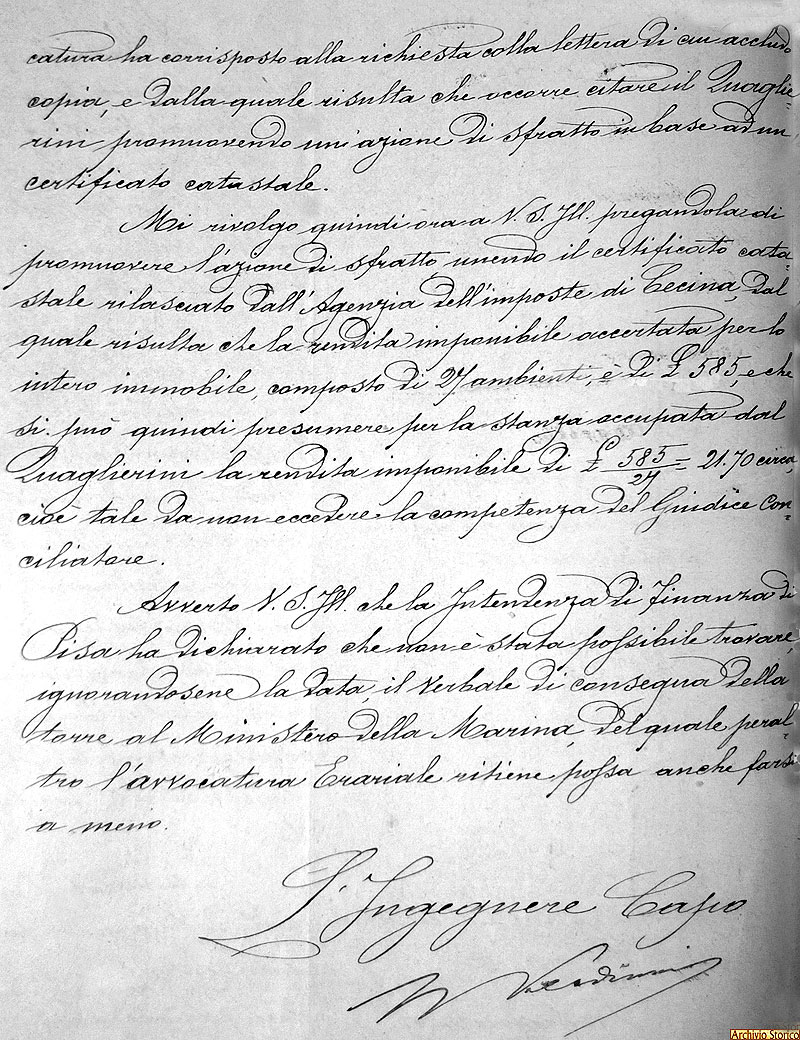 catura ha corrisposto alla richiesta colla lettera di cui accludo
copia, e dalla quale risulta che occorre citare il Quaglie=
rini promuovendo un'azione di sfratto in base ad un
certificato catastale.
Mi rivolgo quindi ora a V. S. Ill. pregandola di
promuovere l'azione di sfratto, unendo il certificato cata=
stale rilasciato dall'Agenzia dell'imposte di Cecina, dal
quale risulta che la rendita imponibile accertata per lo
intero immobile, composto di 27 ambienti, è di £ 585, e che
si può quindi presumere per la stanza occupata dal
Quaglierini la rendita imponibile di £ 585/27 = 21.70 circa,
cioè tale da non eccedere la competenza del Giudice Con=
ciliatore.
Avverto V. S. Ill. che la Intendenza di Finanza di
Pisa ha dichiarato che non è stata possibile trovare,
ignorandosene la data, il verbale di consegna della
torre al Ministero della Marina, del quale peral=
tro l'avvocatura Erariale ritiene possa anche farsi
a meno.
L'Ingegnere Capo
Archivio Storico